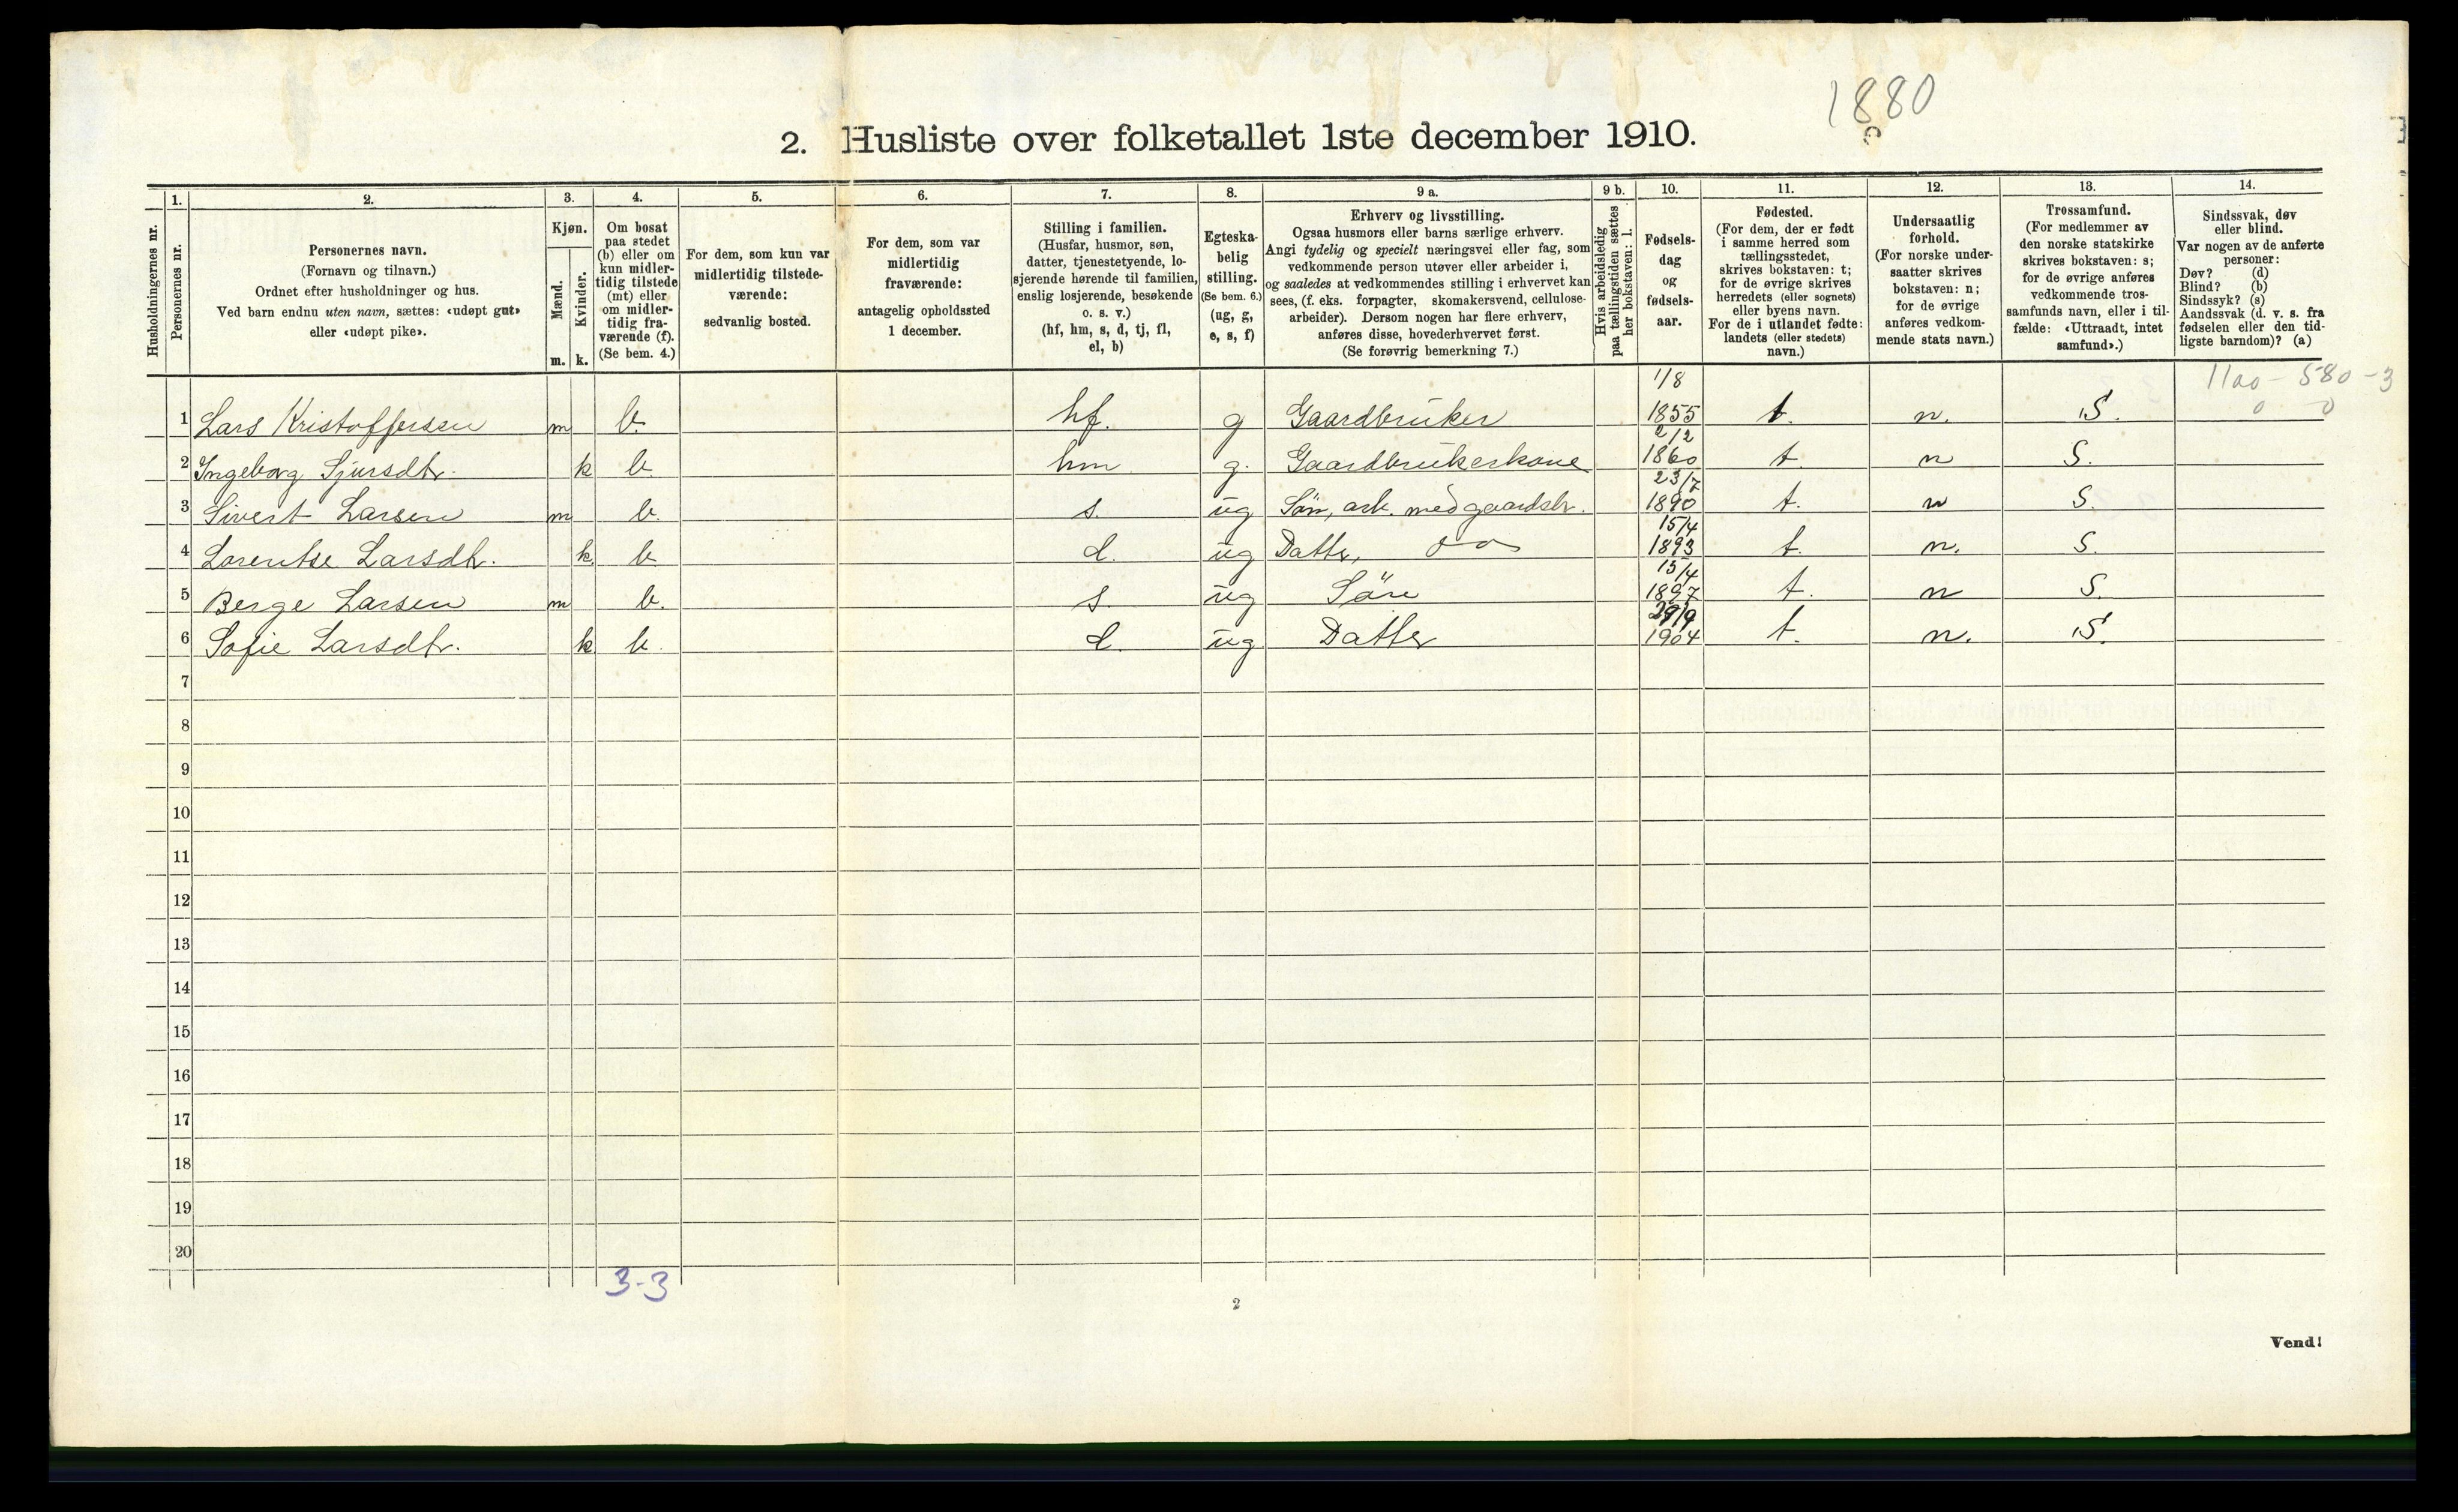 1880
2. Husliste over folketallet 1ste december 1910.
Husholdningernes nr.
1.
Personernes nr.
2.
Personernes navn.
(Fornavn og tilnavn.)
Ordnet efter husholdninger og hus.
Ved barn endnu uten navn, sættes: «udøpt gut»
eller «udøpt pike».
3.
Kjøn.
Mænd.
Kvinder.
m. k.
4.
Om bosat
paa stedet
(b) eller om
kun midler-
tidig tilstede
(mt) eller
om midler-
tidig fra-
værende (f).
(Se bem. 4.)
5.
For dem, som kun var
midlertidig tilstede-
værende:
sedvanlig bosted.
6.
For dem, som var
midlertidig
fraværende:
antagelig opholdssted
1 december.
7.
Stilling i familien.
(Husfar, husmor, søn,
datter, tjenestetyende, lo-
sjerende hørende til familien,
enslig losjerende, besøkende
o. s. v.)
(hf, hm, s, d, tj, fl,
el, b)
8.
Egteska-
belig
stilling.
(Se bem. 6.)
(ug, g,
e, s, f)
9 a.
Erhverv og livsstilling.
Ogsaa husmors eller barns særlige erhverv.
Angi tydelig og specielt næringsvei eller fag, som
vedkommende person utøver eller arbeider i,
og saaledes at vedkommendes stilling i erhvervet kan
sees, (f. eks. forpagter, skomakersvend, cellulose-
arbeider). Dersom nogen har flere erhverv,
anføres disse, hovederhvervet først.
(Se forøvrig bemerkning 7.)
9 b.
Hvis arbeidsledig
paa tællingstiden sættes
her bokstaven: l.
10.
Fødsels-
dag
og
fødsels-
aar.
11.
Fødested.
(For dem, der er født
i samme herred som
tællingsstedet,
skrives bokstaven: t;
for de øvrige skrives
herredets (eller sognets)
eller byens navn.
For de i utlandet fødte:
landets (eller stedets)
navn.)
12.
Undersaatlig
forhold.
(For norske under-
saatter skrives
bokstaven: n;
for de øvrige
anføres vedkom-
mende stats navn.)
13.
Trossamfund.
(For medlemmer av
den norske statskirke
skrives bokstaven: s;
for de øvrige anføres
vedkommende tros-
samfunds navn, eller i til-
fælde: «Uttraadt, intet
samfund».)
14.
Sindssvak, døv
eller blind.
Var nogen av de anførte
personer:
Døv? (d)
Blind? (b)
Sindssyk? (s)
Aandssvak (d. v. s. fra
fødselen eller den tid-
ligste barndom)? (a)
1100 - 580 - 3
0 0
1 Lars Kristoffersen m b. hf. g Gaardbruker 1/8 1855 t. n. S.
2 Ingeborg Sjursdtr. k b hm g. Gaardbrukerkone 2/2 1860 t. n S.
3 Sivert Larsen m b. s. ug Sön, arb. med gaardsbr. 23/7 1890 t. n S.
4 Lorentse Larsdtr. k. b d. ug Datter, 15/4 1893 t. n. S.
5 Berge Larsen m b. s. ug Sön 15/4 1897 t. n S.
6 Sofie Larsdtr. k b. d. ug Datter 1904 t. n. S.
7
8
9
10
11
12
13
14
15
16
17
18
19
20
3-3
2
Vend!